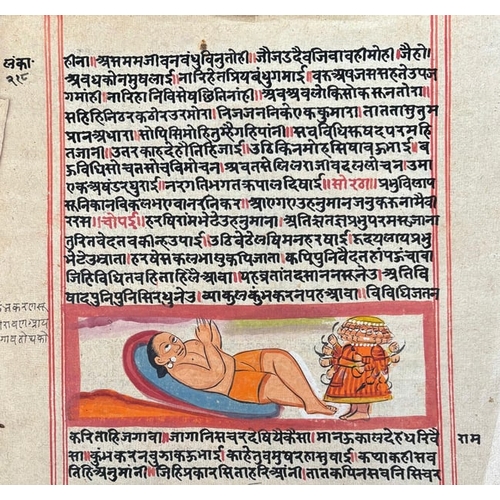 लंका
२१८
हीना॥ असममजीवनबंधुबिनुतोही॥ जौंजडदैवजिवावहीमोही॥ जैहो
अवधकौनमुषलाई॥ नारिहेतप्रियबंधुगमाई॥ वरुअपजससहतेउजग
माहीं॥ नारिहानिविसेषछितिनांही॥ अवअवलोकिसोकसुततोरा॥ स
हिहिनिठरकठोरउरमोरा॥ निजजननिकेएककुमारा॥ ताततासुतुम
प्रानअधारा॥ सोंपिसिमोहितुमैगहिपांनी॥ सवविधिसुषदपरमहि
तजानी॥ उतरकाहदेहौतिहिजाई॥ उठिकिनमोहिसिषावऊभाई॥ ब
ऊविधिसोचतसोचविमोचन॥ श्रवतसलिलराजीवदललोचन॥ उमा
एकअषंडरघुराई॥ नरगतिभगतकृपालदिषाई॥ सोरठा॥ प्रभुविलाप
सुनिकानविकलभएवानरनिकर॥ आएगएउहनुमानजनुकरुनामैवी
ररस॥ चौपई॥ हरषिरांमभेटेउहनुमाना॥ अतिकृतज्ञप्रभुपरमसुजाना
तुरितवैदतवकीन्हउपाई॥ उठिबैठेलछिमनहरषाई॥ हृदयलायप्रभु
भेटेउभ्राता॥ हरषेसकलभालुकपिव्राता॥ कपिपुनिवैदतहांपऊंचावा॥
जिहिविधितवहिताहिलैआवा॥ यहवृतांतदसाननसुनेउ॥ अतिवि
षादपुनिपुनिसिरधुनेउ॥ व्याकुलकुंभकरनपहआवा॥ विविधिजतन
करिताहिजगावा॥ जागानिसचरदेषियैकैसा॥ मानऊकालदेहधरिवै
सा॥ कुंभकरनबूझाकऊभाई॥ काहेतुवमुषरहासुषाई॥ कथाकहीसव
तिहिअभुमानी॥ जिहिप्रकारसिताहरिआंनी॥ तातकपिनसवनिसिचर
राम